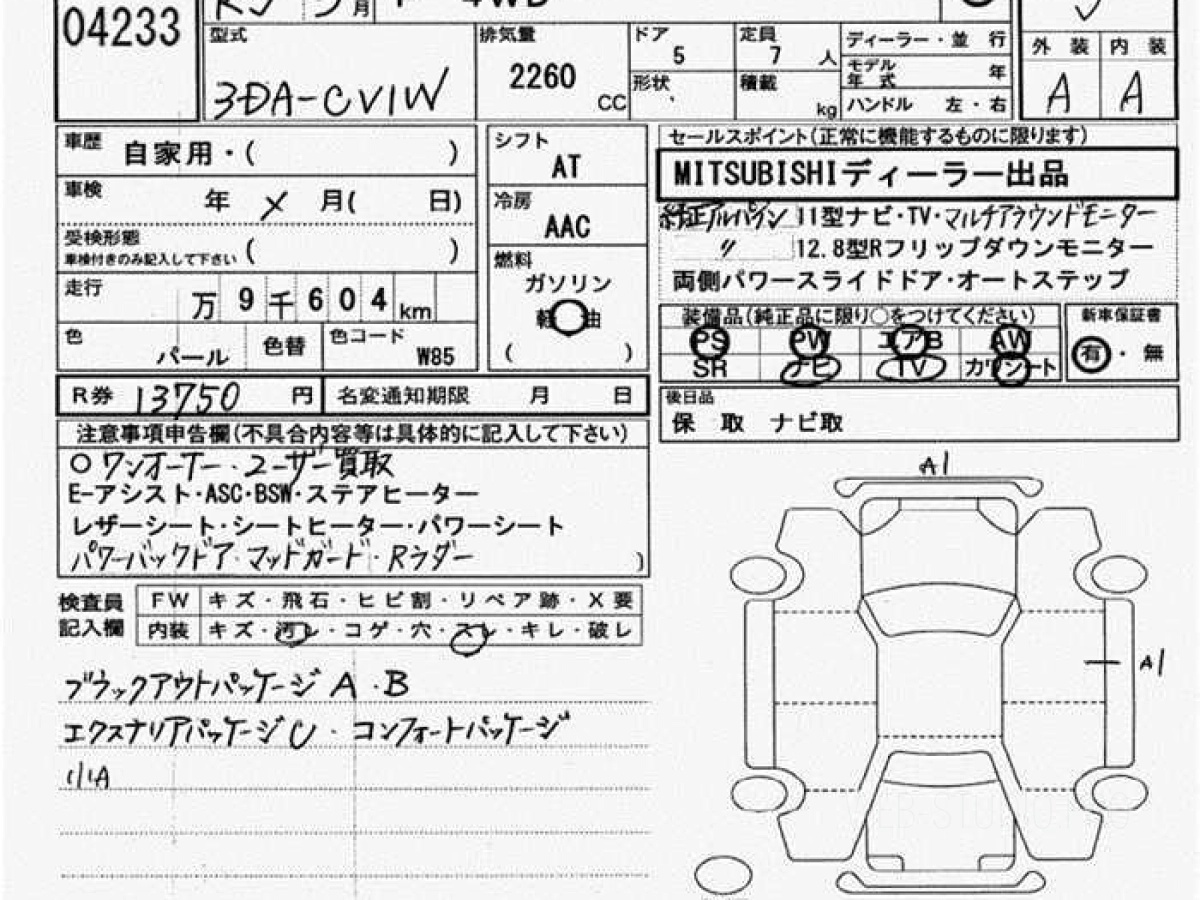 04233
型式
3DA-CV1W
排気量
2260
CC
ドア
5
形状
定員
7 人
積載
kg
ディーラー・並 行
モデル
年 式 年
ハンドル 左・右
外 装 内 装
A A
車歴 自家用・( )
車検 年 × 月( 日)
受検形態
車検付きのみ記入して下さい ( )
走行 万 9 千 6 0 4 km
色 パール
色替
色コード W85
シフト
AT
冷房
AAC
燃料
ガソリン
軽 油
( )
セールスポイント(正常に機能するものに限ります)
MITSUBISHIディーラー出品
純正アルパイン 11型ナビ・TV・マルチアラウンドモニター
〃 12.8型Rフリップダウンモニター
両側パワースライドドア・オートステップ
装備品(純正品に限り○をつけてください)
PS PW エアB AW
SR ナビ TV カワシート
新車保証書
有・無
R券 13750 円
名変通知期限 月 日
後日品
保 取 ナビ取
注意事項申告欄(不具合内容等は具体的に記入して下さい)
○ワンオーナー・ユーザー買取
E-アシスト・ASC・BSW・ステアヒーター
レザーシート・シートヒーター・パワーシート
パワーバックドア・マッドガード・Rラダー )
検査員
記入欄
FW キズ・飛石・ヒビ割・リペア跡・X要
内装 キズ・汚レ・コゲ・穴・スレ・キレ・破レ
ブラックアウトパッケージA・B
エクステリアパッケージU・コンフォートパッケージ
A1
A1